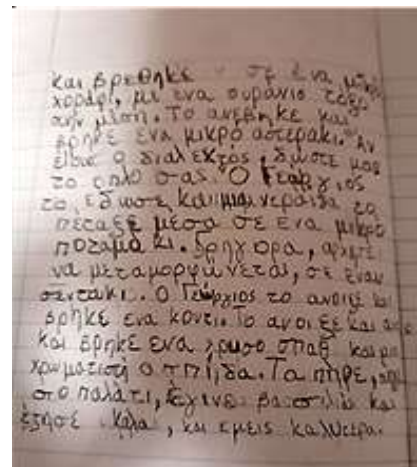 και βρεθηκε σε ένα μικρό
χοράφι, με ενα ουράνιο τόξο
στην μέση. Το ανέβηκε και
βρηκε ένα μικρό αστεράκι. "Αν
είσαι ο διαλεχτός, δώσε μου
το σας." Ο Γεωργιος
το έδωσε και μια νεράιδα το
πέταξε μέσα σε ένα μικρό
ποταμά κι. Γρήγορα, αρχιζει
να μεταμορφώνεται, σε έναν
σεντακι. Ο Γεώργιος το ανοιξε και
βρηκε ενα κουτι. Το ανοι ξε και
και βρηκε ένα χρυσο σπαθ και μια
χρωματιστη α πί,δα. Τα πηρε,
στο παλάτι, έγινε βα σιλιάς και
έζησε καλα, και εμεις καλυτερα.